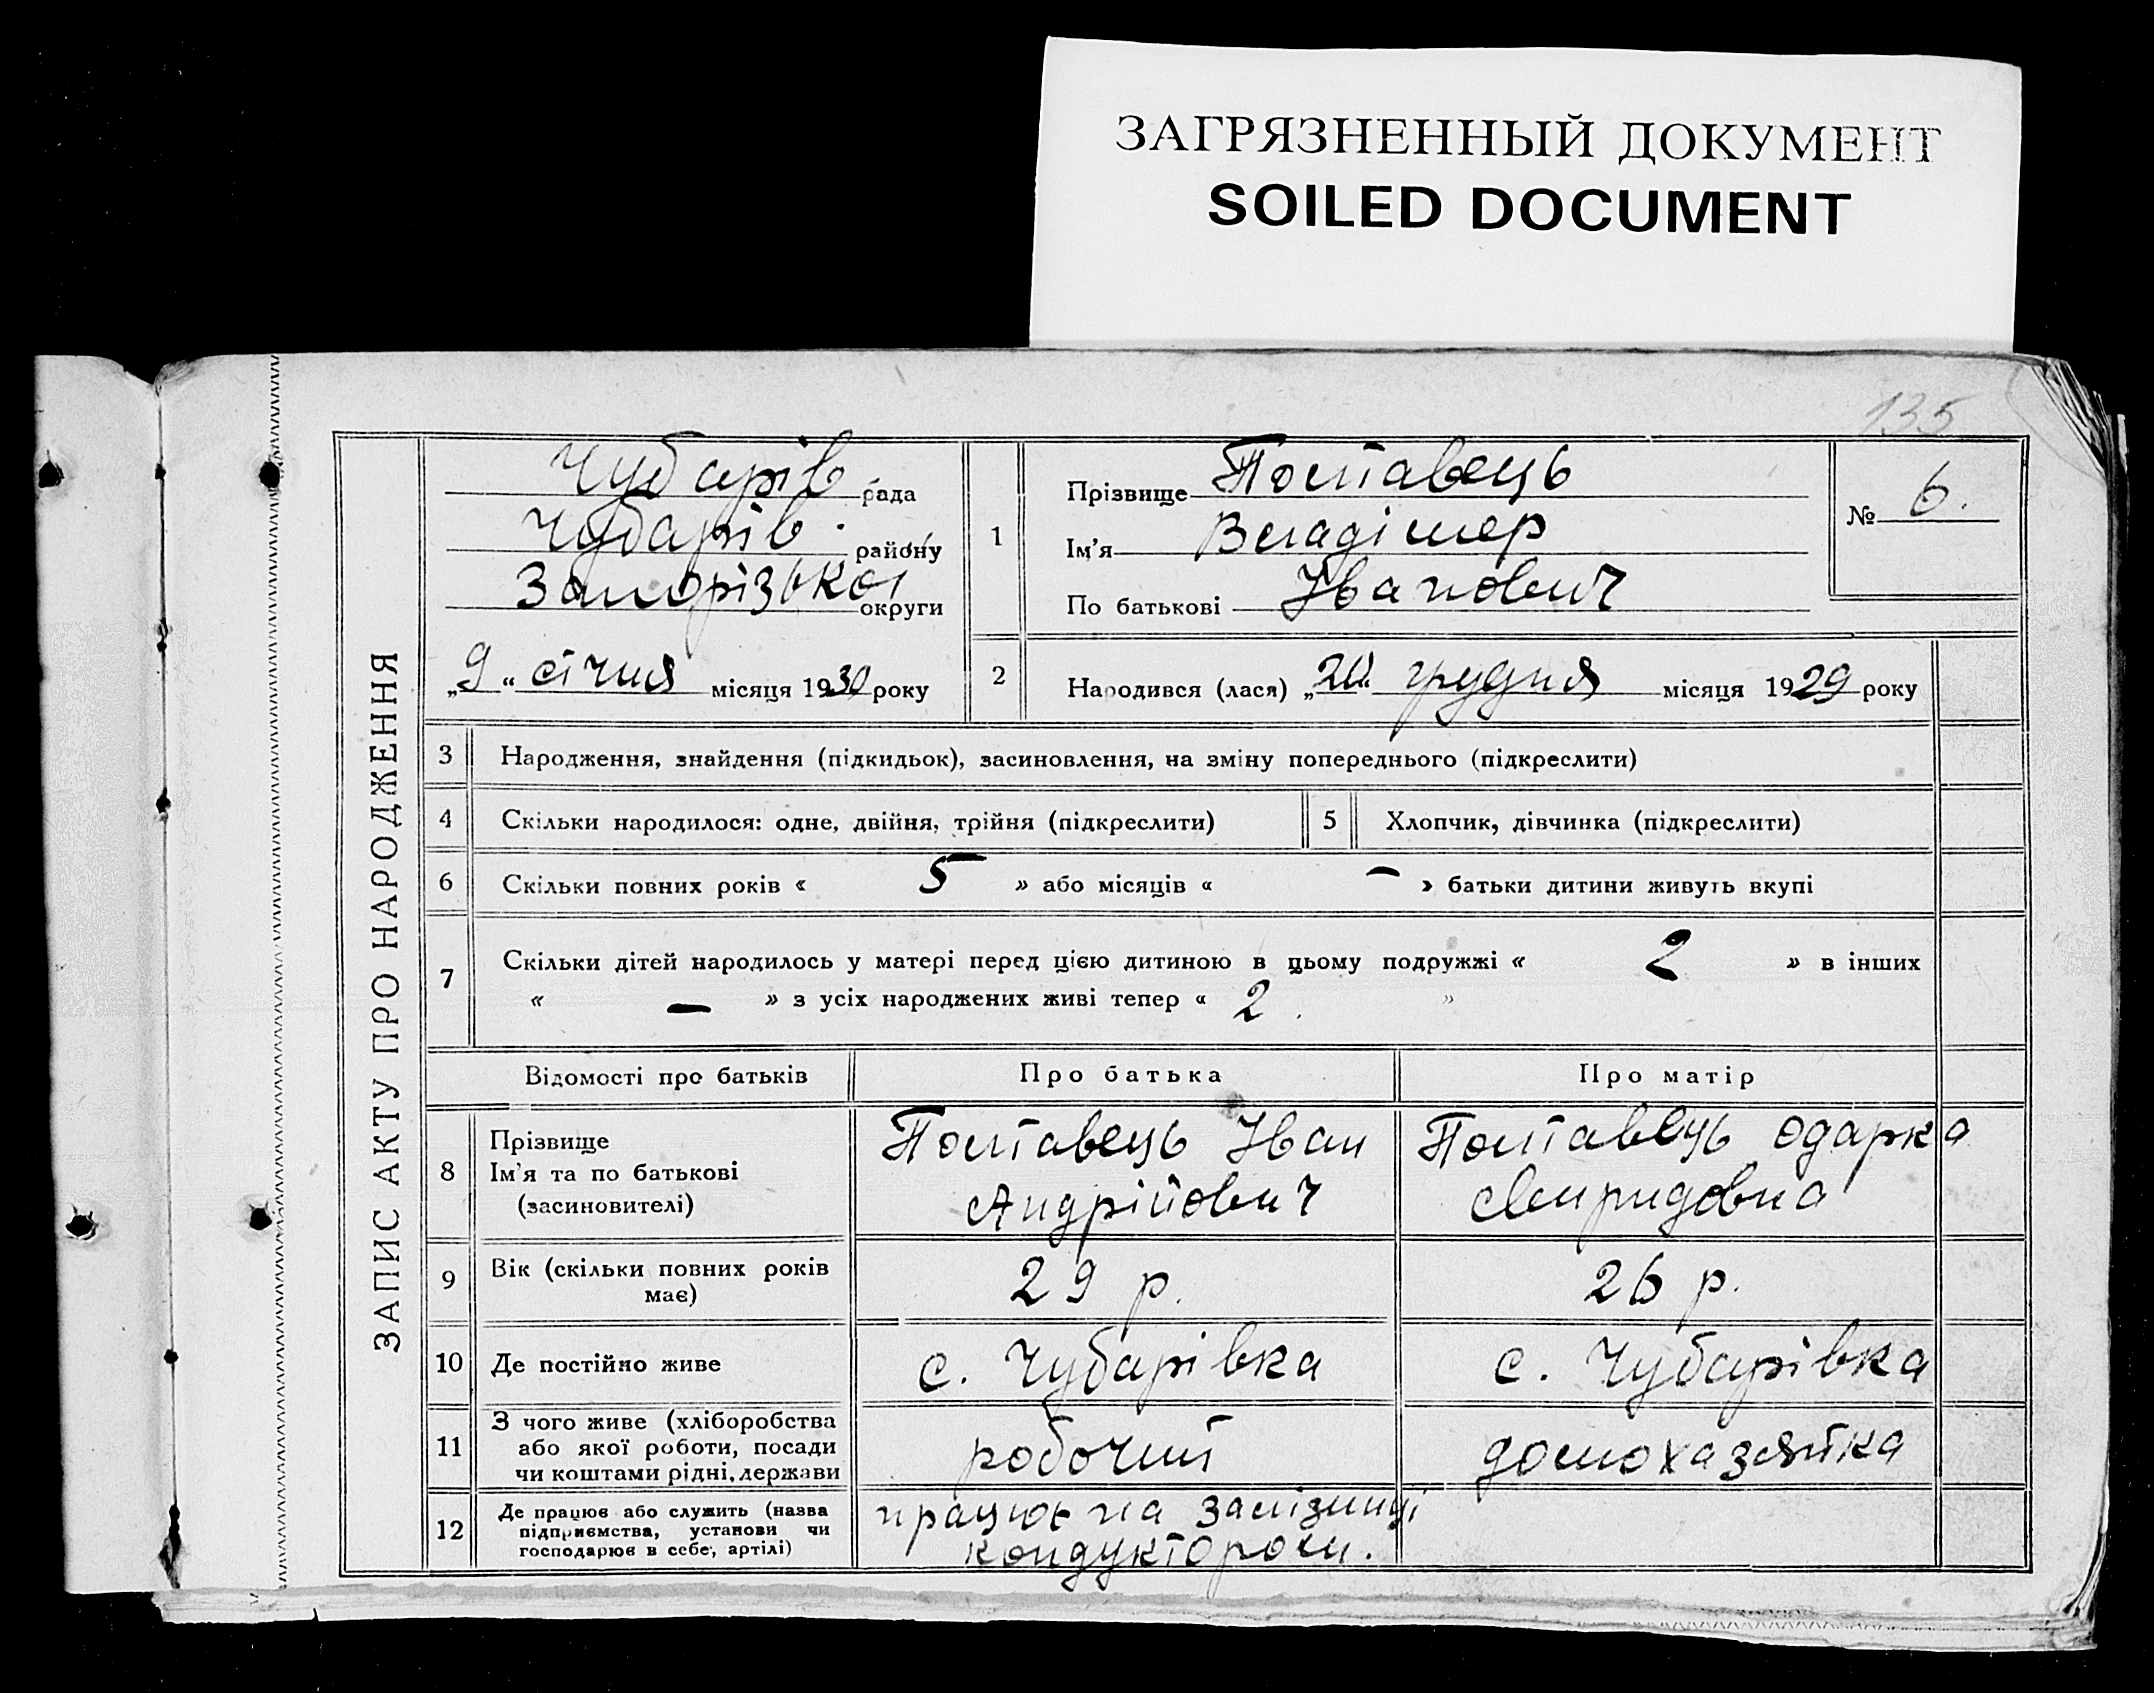 ЗАГРЯЗНЕННЫЙ ДОКУМЕНТ
SOILED DOCUMENT
135
ЗАПИС АКТУ ПРО НАРОДЖЕННЯ
Чубарів рада
Чубарів району
Запорізької округи
„9“ січня місяця 1930 року
1
Прізвище Полтавець
Ім'я Владімер
По батькові Іванович
№ 6.
2
Народився (лася) „20“ грудня місяця 1929 року
3 Народження, знайдення (підкидьок), засиновлення, на зміну попереднього (підкреслити)
4 Скільки народилося: одне, двійня, трійня (підкреслити)
5 Хлопчик, дівчинка (підкреслити)
6 Скільки повних років « 5 » або місяців « – » батьки дитини живуть вкупі
7 Скільки дітей народилось у матері перед цією дитиною в цьому подружжі « 2 » в інших
« – » з усіх народжених живі тепер « 2. »
Відомості про батьків
Про батька
Про матір
8 Прізвище
Ім'я та по батькові
(засиновителі)
Полтавець Іван
Андрійович
Полтавець Одарка
Спиридовна
9 Вік (скільки повних років
має)
29 р.
26 р.
10 Де постійно живе
с. Чубарівка
с. Чубарівка
11 З чого живе (хліборобства
або якої роботи, посади
чи коштами рідні, держави
робочий
домохазяйка
12 Де працює або служить (назва
підприємства, установи чи
господарює в себе, артілі)
працює на залізниці
кондуктором.